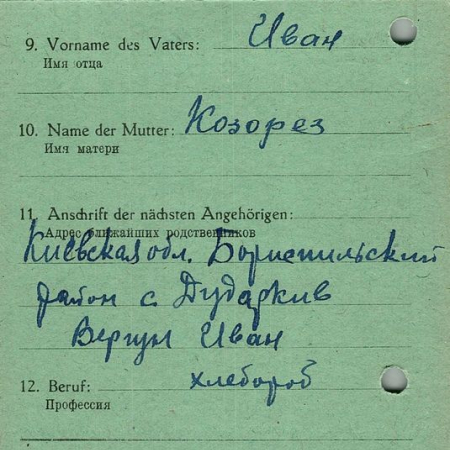 9. Vorname des Vaters: Иван
Имя отца
10. Name der Mutter: Козорез
Имя матери
11. Anschrift der nächsten Angehörigen:
Адрес ближайших родственников
Киевская обл. Бориспильский
район с Дударкив
Вергун Иван
12. Beruf: хлебороб
Профессия